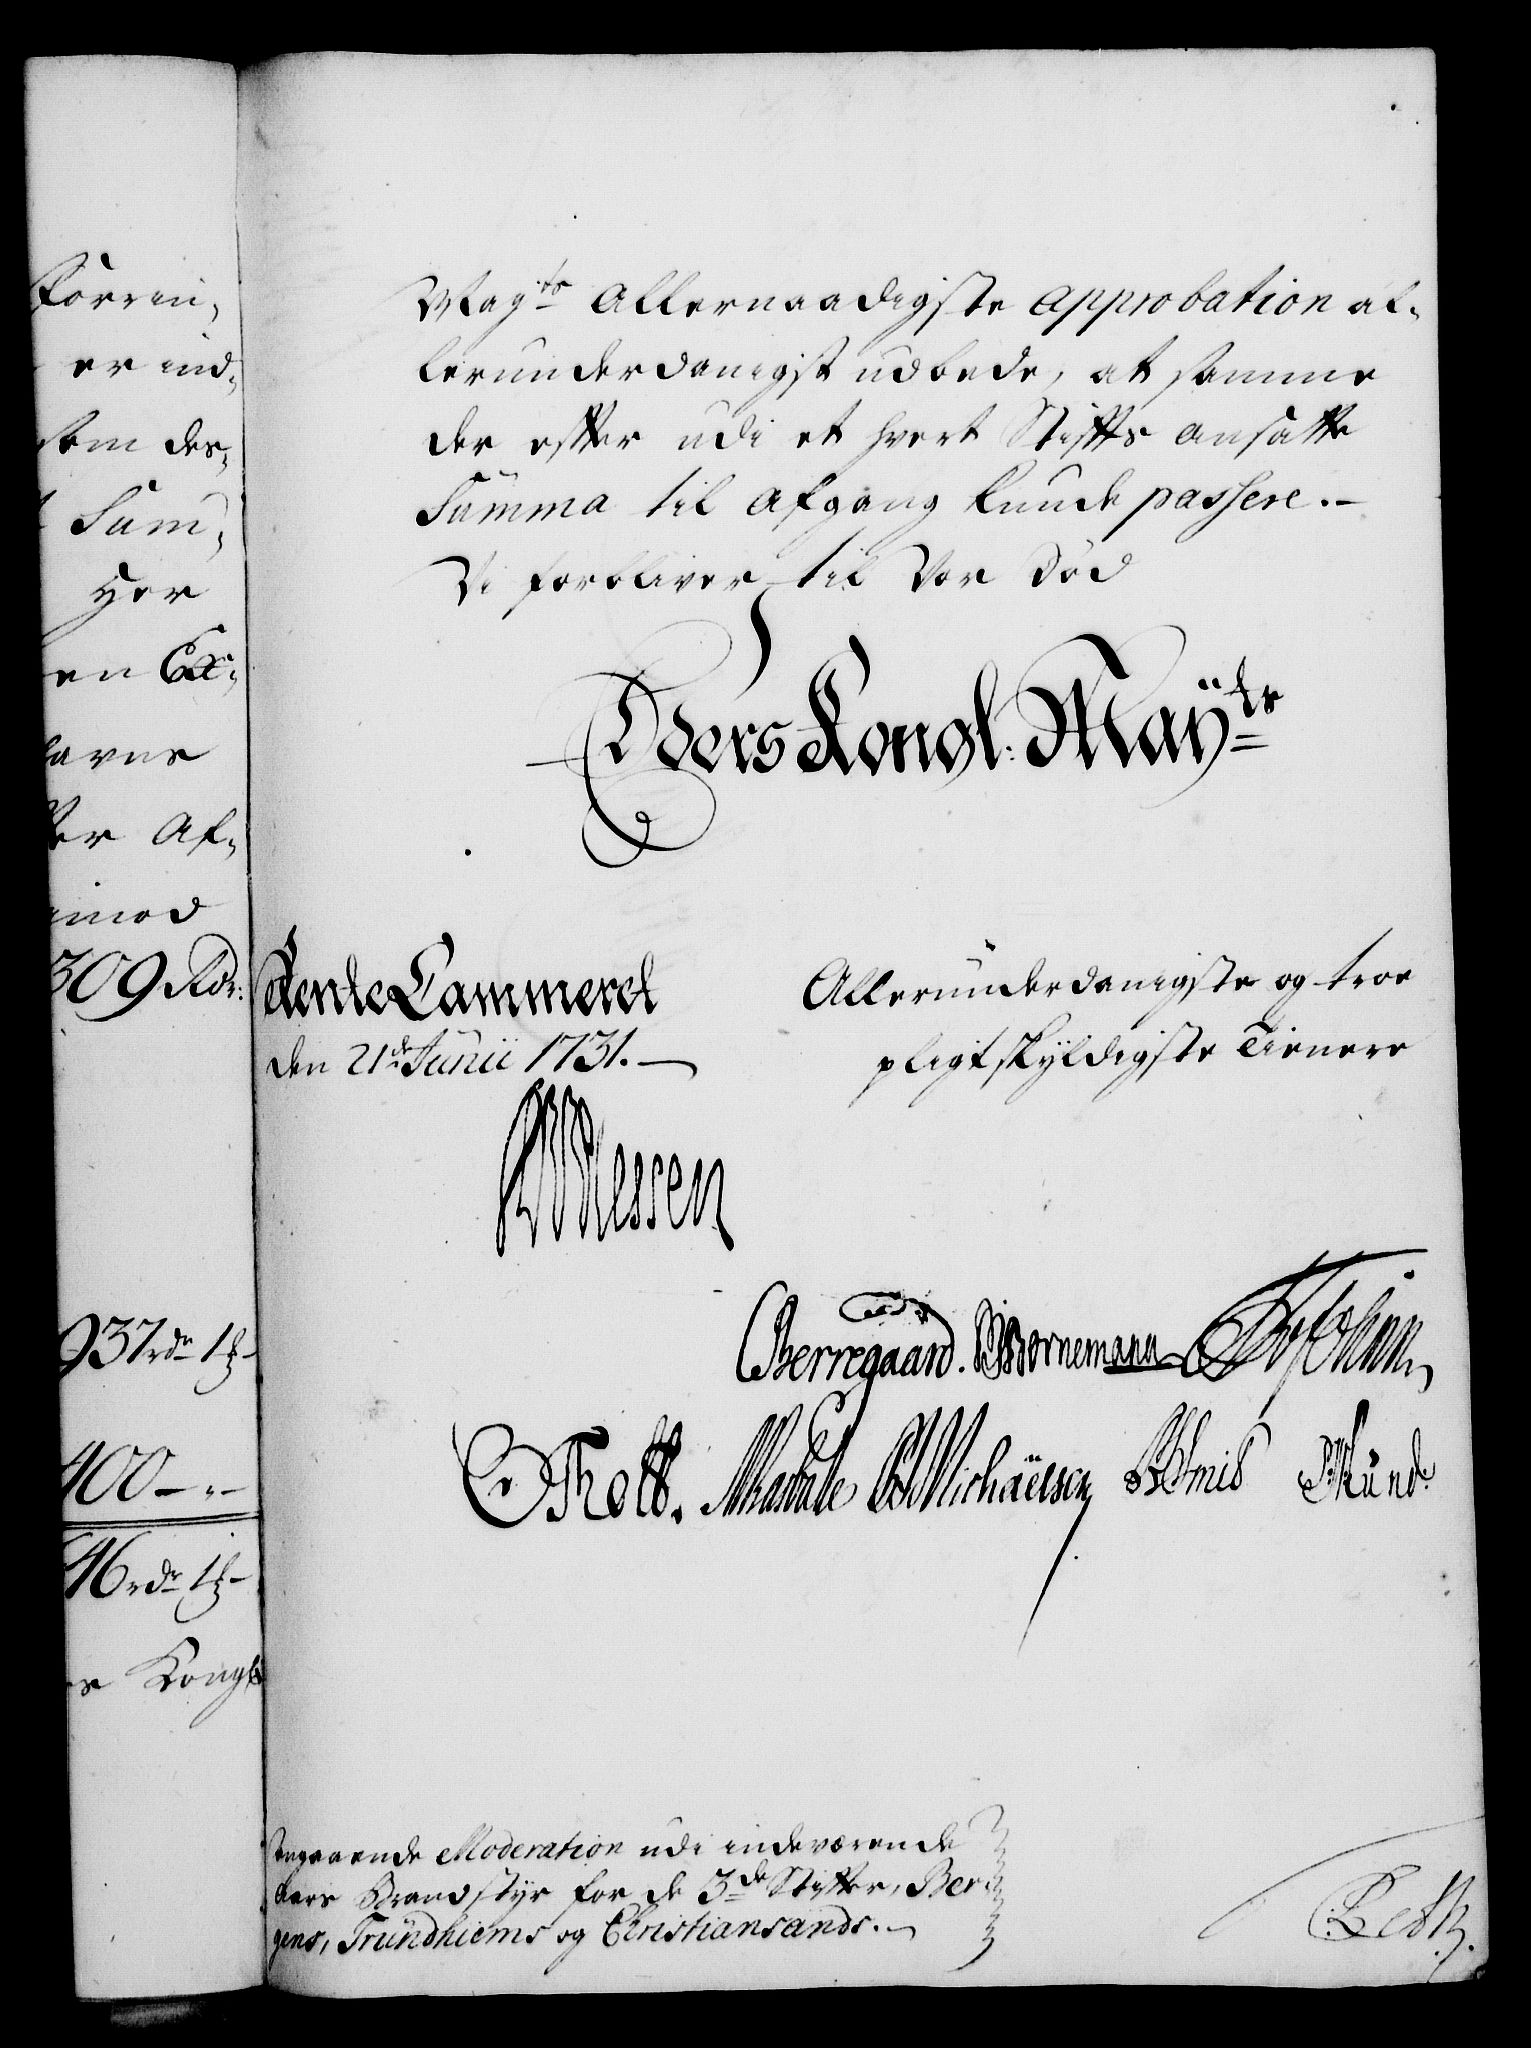 forrin,
er ind,
som des,
Sum,
Her
en Ex,
larne
ter Af,
imod
309 Rdr:
937 rdr 1 ß
400 – " –
46 rdr 1 ß
Kongl
Mayts Allernaadigste approbation al,
lerunderdanigst udbede, at samme
der efter udi et hvert Stiffts ansatte
Summa til Afgang kunde passere. –
Vi forbliver til Vor Død
Eders Kongl: Mayts
Rente Cammeret
den 21de Junii 1731. –
Allerunderdanigste og troe
pligtskyldigste Tienere
Nessen
CBerregaard. Bornemann
OThott. CMichäelsen
angaaende Moderation udi indeværende
Aars Brandstyr for de 3de Stifter, Ber
gens, Trundhiems og Christiansands. –